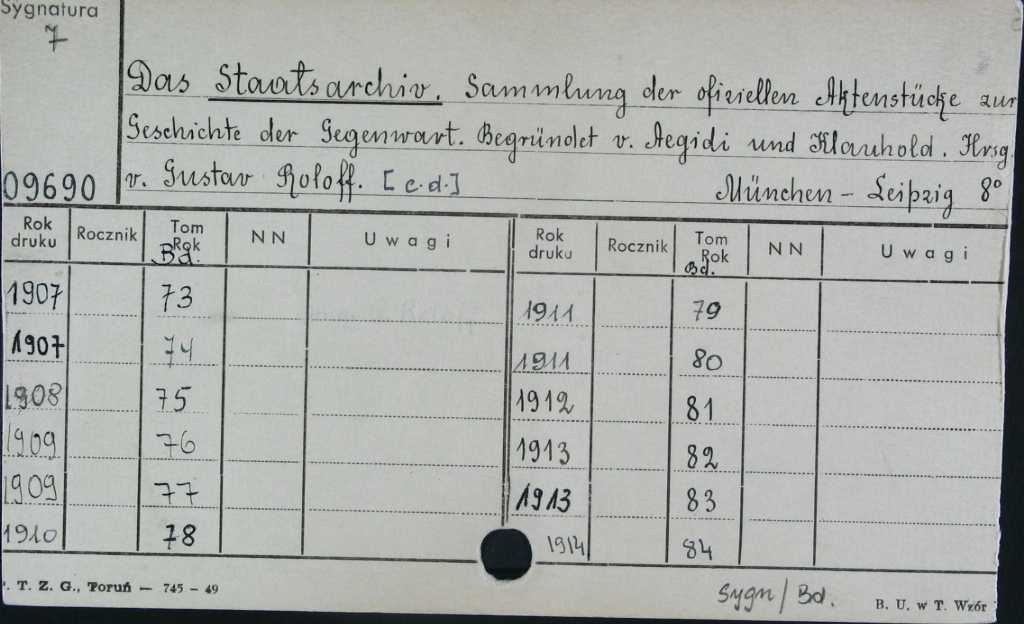 Sygnatura
7
Das Staatsarchiv. Sammlung der ofiziellen Aktenstücke zur
Geschichte der Gegenwart. Begründet v. Aegidi und Klauhold. Hrsg.
09690 v. Gustav Roloff. [c.d.] München – Leipzig 8°
Rok druku Rocznik Tom Rok Bd. NN Uwagi Rok druku Rocznik Tom Rok Bd. NN Uwagi
1907 73 1911 79
1907 74 1911 80
1908 75 1912 81
1909 76 1913 82
1909 77 1913 83
1910 78 1914 84
. T. Z. G., Toruń — 745 – 49 Sygn/Bd. B. U. w T. Wzór